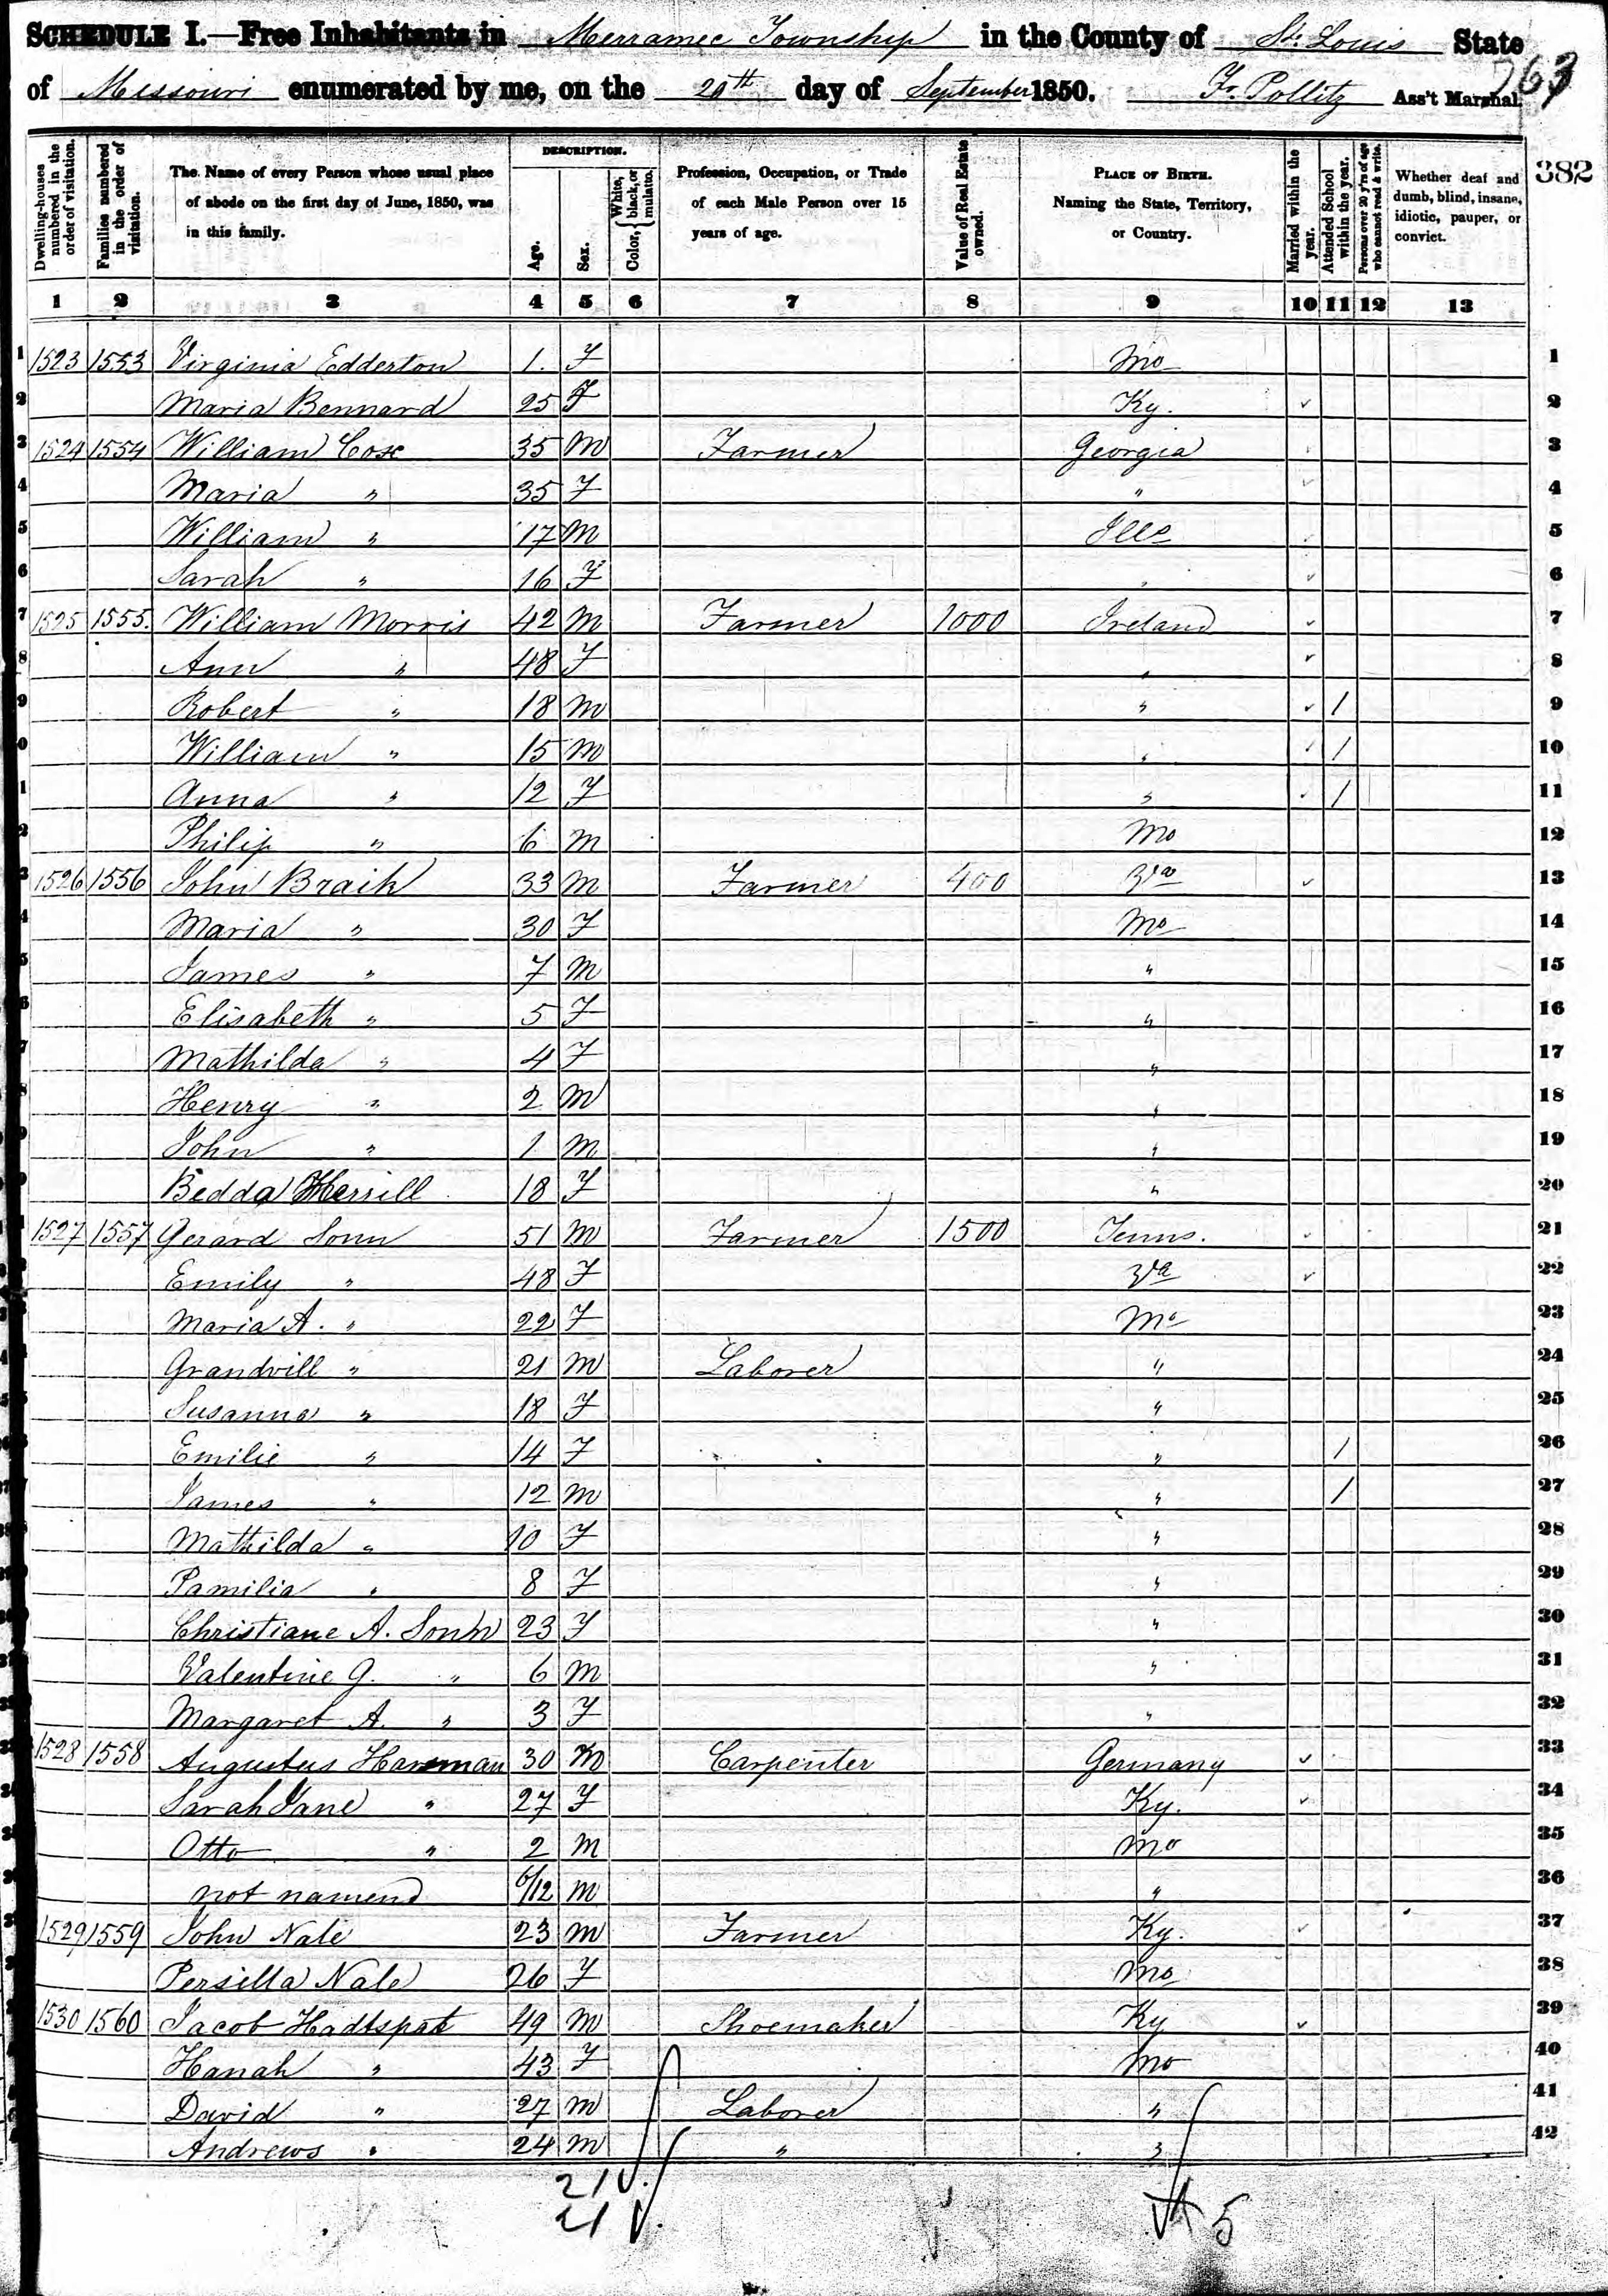 SCHEDULE I.—Free Inhabitants in Merramec Township in the County of St. Louis State
of Missouri enumerated by me, on the 20th day of September 1850. Fr. Pollitz Ass't Marshal.
763
382
Dwelling-houses numbered in the order of visitation.
Families numbered in the order of visitation.
The Name of every Person whose usual place of abode on the first day of June, 1850, was in this family.
DESCRIPTION.
Age.
Sex.
Color, { White, black, or mulatto.
Profession, Occupation, or Trade of each Male Person over 15 years of age.
Value of Real Estate owned.
PLACE OF BIRTH. Naming the State, Territory, or Country.
Married within the year.
Attended School within the year.
Persons over 20 y'rs of age who cannot read & write.
Whether deaf and dumb, blind, insane, idiotic, pauper, or convict.
1 2 3 4 5 6 7 8 9 10 11 12 13
1 1523 1553 Virginia Edderton 1. F Mo 1
2 Maria Bennard 25 F Ky. 2
3 1524 1554 William Cose 35 M Farmer Georgia 3
4 Maria " 35 F " 4
5 William " 17 M Ills 5
6 Sarah " 16 F " 6
7 1525 1555. William Morris 42 M Farmer 1000 Ireland 7
8 Ann " 48 F " 8
9 Robert " 18 M " / 9
0 William " 15 M " / 10
1 Anna " 12 F " / 11
2 Philip " 6 M Mo 12
3 1526 1556 John Braik 33 M Farmer 400 Va 13
4 Maria " 30 F Mo 14
5 James " 7 M " 15
6 Elisabeth " 5 F " 16
7 Mathilda " 4 F " 17
8 Henry " 2 M " 18
9 John " 1 M " 19
Bedda Merrill 18 F " 20
1527 1557 Gerard Sonn 51 M Farmer 1500 Tenns. 21
Emily " 48 F Va 22
Maria A. " 22 F Mo 23
Grandvill " 21 M Laborer " 24
Susanna " 18 F " 25
Emilie " 14 F " / 26
James " 12 M " / 27
Mathilda " 10 F " 28
Pamilia " 8 F " 29
Christiane A. Sonn 23 F " 30
Valentine G. " 6 M " 31
Margaret A. " 3 F " 32
1528 1558 Augustus Hansman 30 M Carpenter Germany 33
Sarah Jane " 27 F Ky. 34
Otto " 2 M Mo 35
not namend 6/12 M " 36
1529 1559 John Nale 23 M Farmer Ky. 37
Persilla Nale 26 F Mo 38
1530 1560 Jacob Hadtspot 49 M Shoemaker Ky 39
Hanah " 43 F Mo 40
David " 27 M Laborer " 41
Andrews " 24 M " " 42
21
21
5